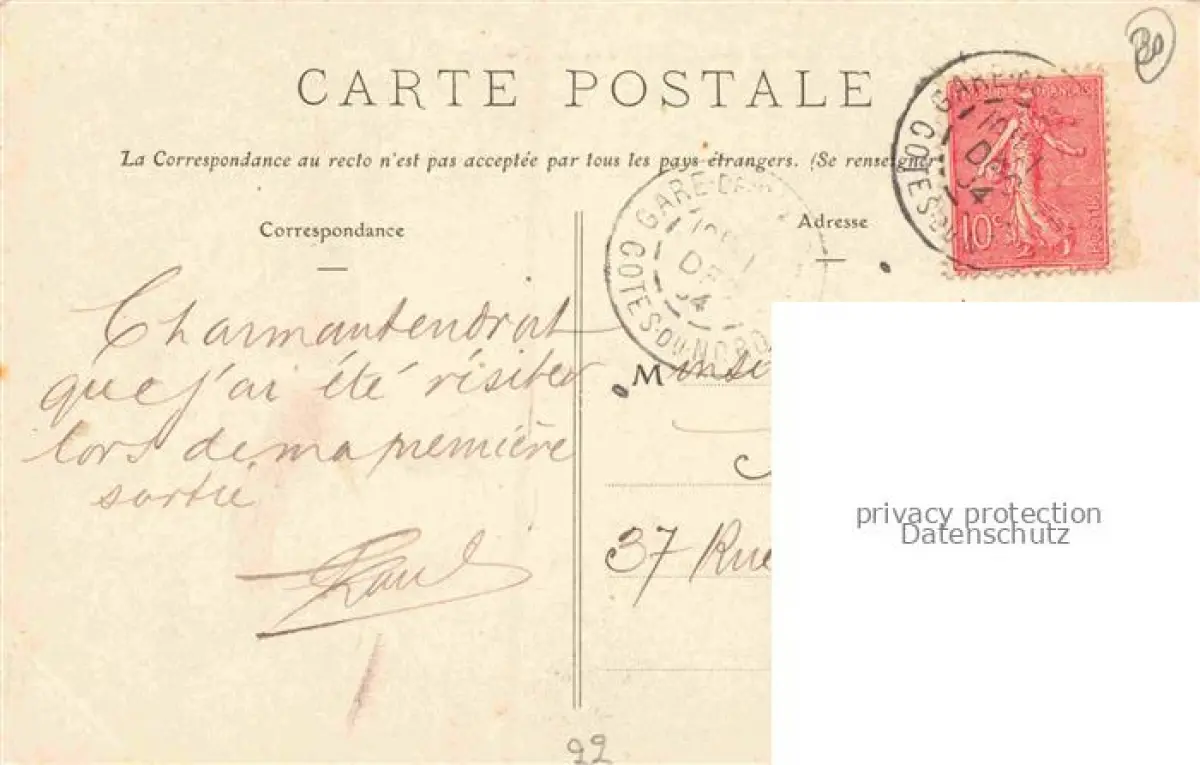 80
CARTE POSTALE
La Correspondance au recto n'est pas acceptée par tous les pays étrangers. (Se renseigner
GARE-DE
COTES-DU-NORD
DEC
04
10c
POSTES
Correspondance
Adresse
GARE-DE
COTES-DU-NORD
04
Charmant endroit
que j'ai été visiter
lors de ma première
sortie
Monsi
37 Rue
privacy protection
Datenschutz
22